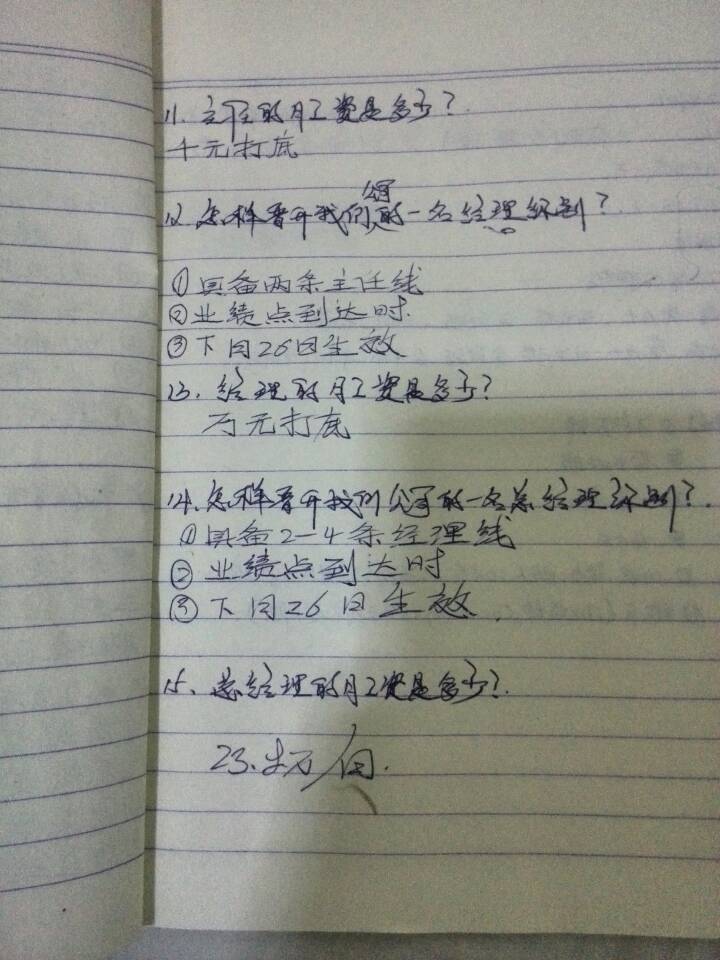 11. 主任的月工资是多少?
千元打底
12. 怎样晋升我们公司的一名经理级别?
①具备两条主任线
②业绩点到达时
③下月26日生效
13. 经理的月工资是多少?
万元打底
14. 怎样晋升我们公司的一名总经理级别?
①具备2-4条经理线
②业绩点到达时
③下月26日生效.
15. 总经理的月工资是多少?.
23.5万/月.